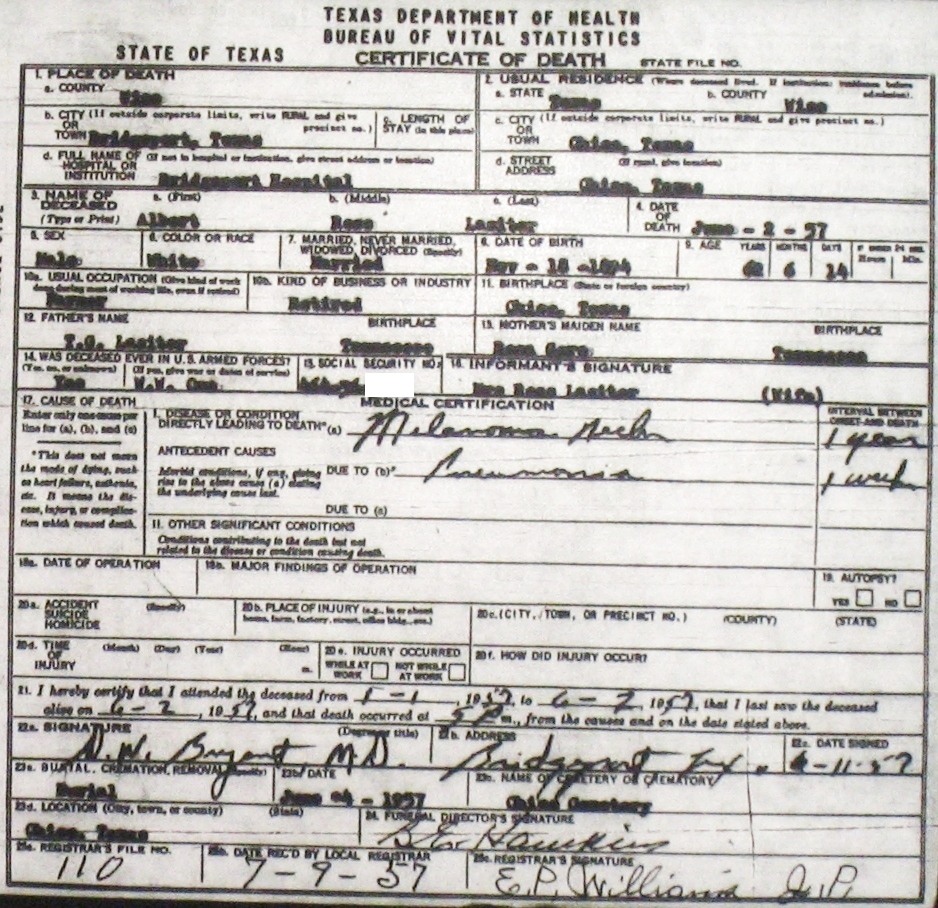 TEXAS DEPARTMENT OF HEALTH
BUREAU OF VITAL STATISTICS
STATE OF TEXAS CERTIFICATE OF DEATH STATE FILE NO.
1. PLACE OF DEATH 2. USUAL RESIDENCE (Where deceased lived. If institution: residence before admission).
a. COUNTY Wise a. STATE Texas b. COUNTY Wise
b. CITY (If outside corporate limits, write RURAL and give precinct no.) OR TOWN Bridgeport, Texas c. LENGTH OF STAY (in this place) c. CITY (If outside corporate limits, write RURAL and give precinct no.) OR TOWN Chico, Texas
d. FULL NAME OF (If not in hospital or institution, give street address or location) HOSPITAL OR INSTITUTION Bridgeport Hospital d. STREET ADDRESS (If rural, give location) Chico, Texas
3. NAME OF DECEASED (Type or Print) a. (First) Albert b. (Middle) Ross c. (Last) Lasiter 4. DATE OF DEATH June - 2 - 57
5. SEX Male 6. COLOR OR RACE White 7. MARRIED, NEVER MARRIED, WIDOWED, DIVORCED (Specify) Married 8. DATE OF BIRTH Nov - 18 - 9. AGE YEARS 62 MONTHS 6 DAYS 14 IF UNDER 24 HRS. Hours Min.
10a. USUAL OCCUPATION (Give kind of work done during most of working life, even if retired) Farmer 10b. KIND OF BUSINESS OR INDUSTRY Retired 11. BIRTHPLACE (State or foreign country) Chico, Texas
12. FATHER'S NAME T.G. Lasiter BIRTHPLACE Tennessee 13. MOTHER'S MAIDEN NAME BIRTHPLACE Tennessee
14. WAS DECEASED EVER IN U.S. ARMED FORCES? (Yes, no, or unknown) Yes (If yes, give war or dates of service) W.W. One 15. SOCIAL SECURITY NO. 16. INFORMANT'S SIGNATURE Mrs Ross Lasiter (Wife)
17. CAUSE OF DEATH MEDICAL CERTIFICATION INTERVAL BETWEEN ONSET AND DEATH
Enter only one cause per line for (a), (b), and (c) I. DISEASE OR CONDITION DIRECTLY LEADING TO DEATH* (a) Melanoma Neck 1 year
*This does not mean the mode of dying, such as heart failure, asthenia, etc. It means the disease, injury, or complication which caused death. ANTECEDENT CAUSES Morbid conditions, if any, giving rise to the above cause (a) stating the underlying cause last. DUE TO (b)* Pneumonia 1 week
DUE TO (c)
II. OTHER SIGNIFICANT CONDITIONS
Conditions contributing to the death but not related to the disease or condition causing death.
18a. DATE OF OPERATION 18b. MAJOR FINDINGS OF OPERATION 19. AUTOPSY? YES NO
20a. ACCIDENT SUICIDE HOMICIDE (Specify) 20b. PLACE OF INJURY (e.g., in or about home, farm, factory, street, office bldg., etc.) 20c. (CITY, TOWN, OR PRECINCT NO.) (COUNTY) (STATE)
20d. TIME OF INJURY (Month) (Day) (Year) (Hour) m. 20e. INJURY OCCURRED WHILE AT WORK NOT WHILE AT WORK 20f. HOW DID INJURY OCCUR?
21. I hereby certify that I attended the deceased from 1-1, 1957, to 6-2, 1957, that I last saw the deceased
alive on 6-2, 1957, and that death occurred at 5 P m., from the causes and on the date stated above.
22a. SIGNATURE (Degree or title) 22b. ADDRESS 22c. DATE SIGNED
D. W. Bryant M.D. Bridgeport Tex. 6-11-57
23a. BURIAL, CREMATION, REMOVAL (Specify) Burial 23b. DATE June 4 - 1957 23c. NAME OF CEMETERY OR CREMATORY Chico Cemetery
23d. LOCATION (City, town, or county) (State) Chico, Texas 24. FUNERAL DIRECTOR'S SIGNATURE Hawkins
25a. REGISTRAR'S FILE NO. 110 25b. DATE REC'D BY LOCAL REGISTRAR 7-9-57 25c. REGISTRAR'S SIGNATURE E.P. Williams J.P.